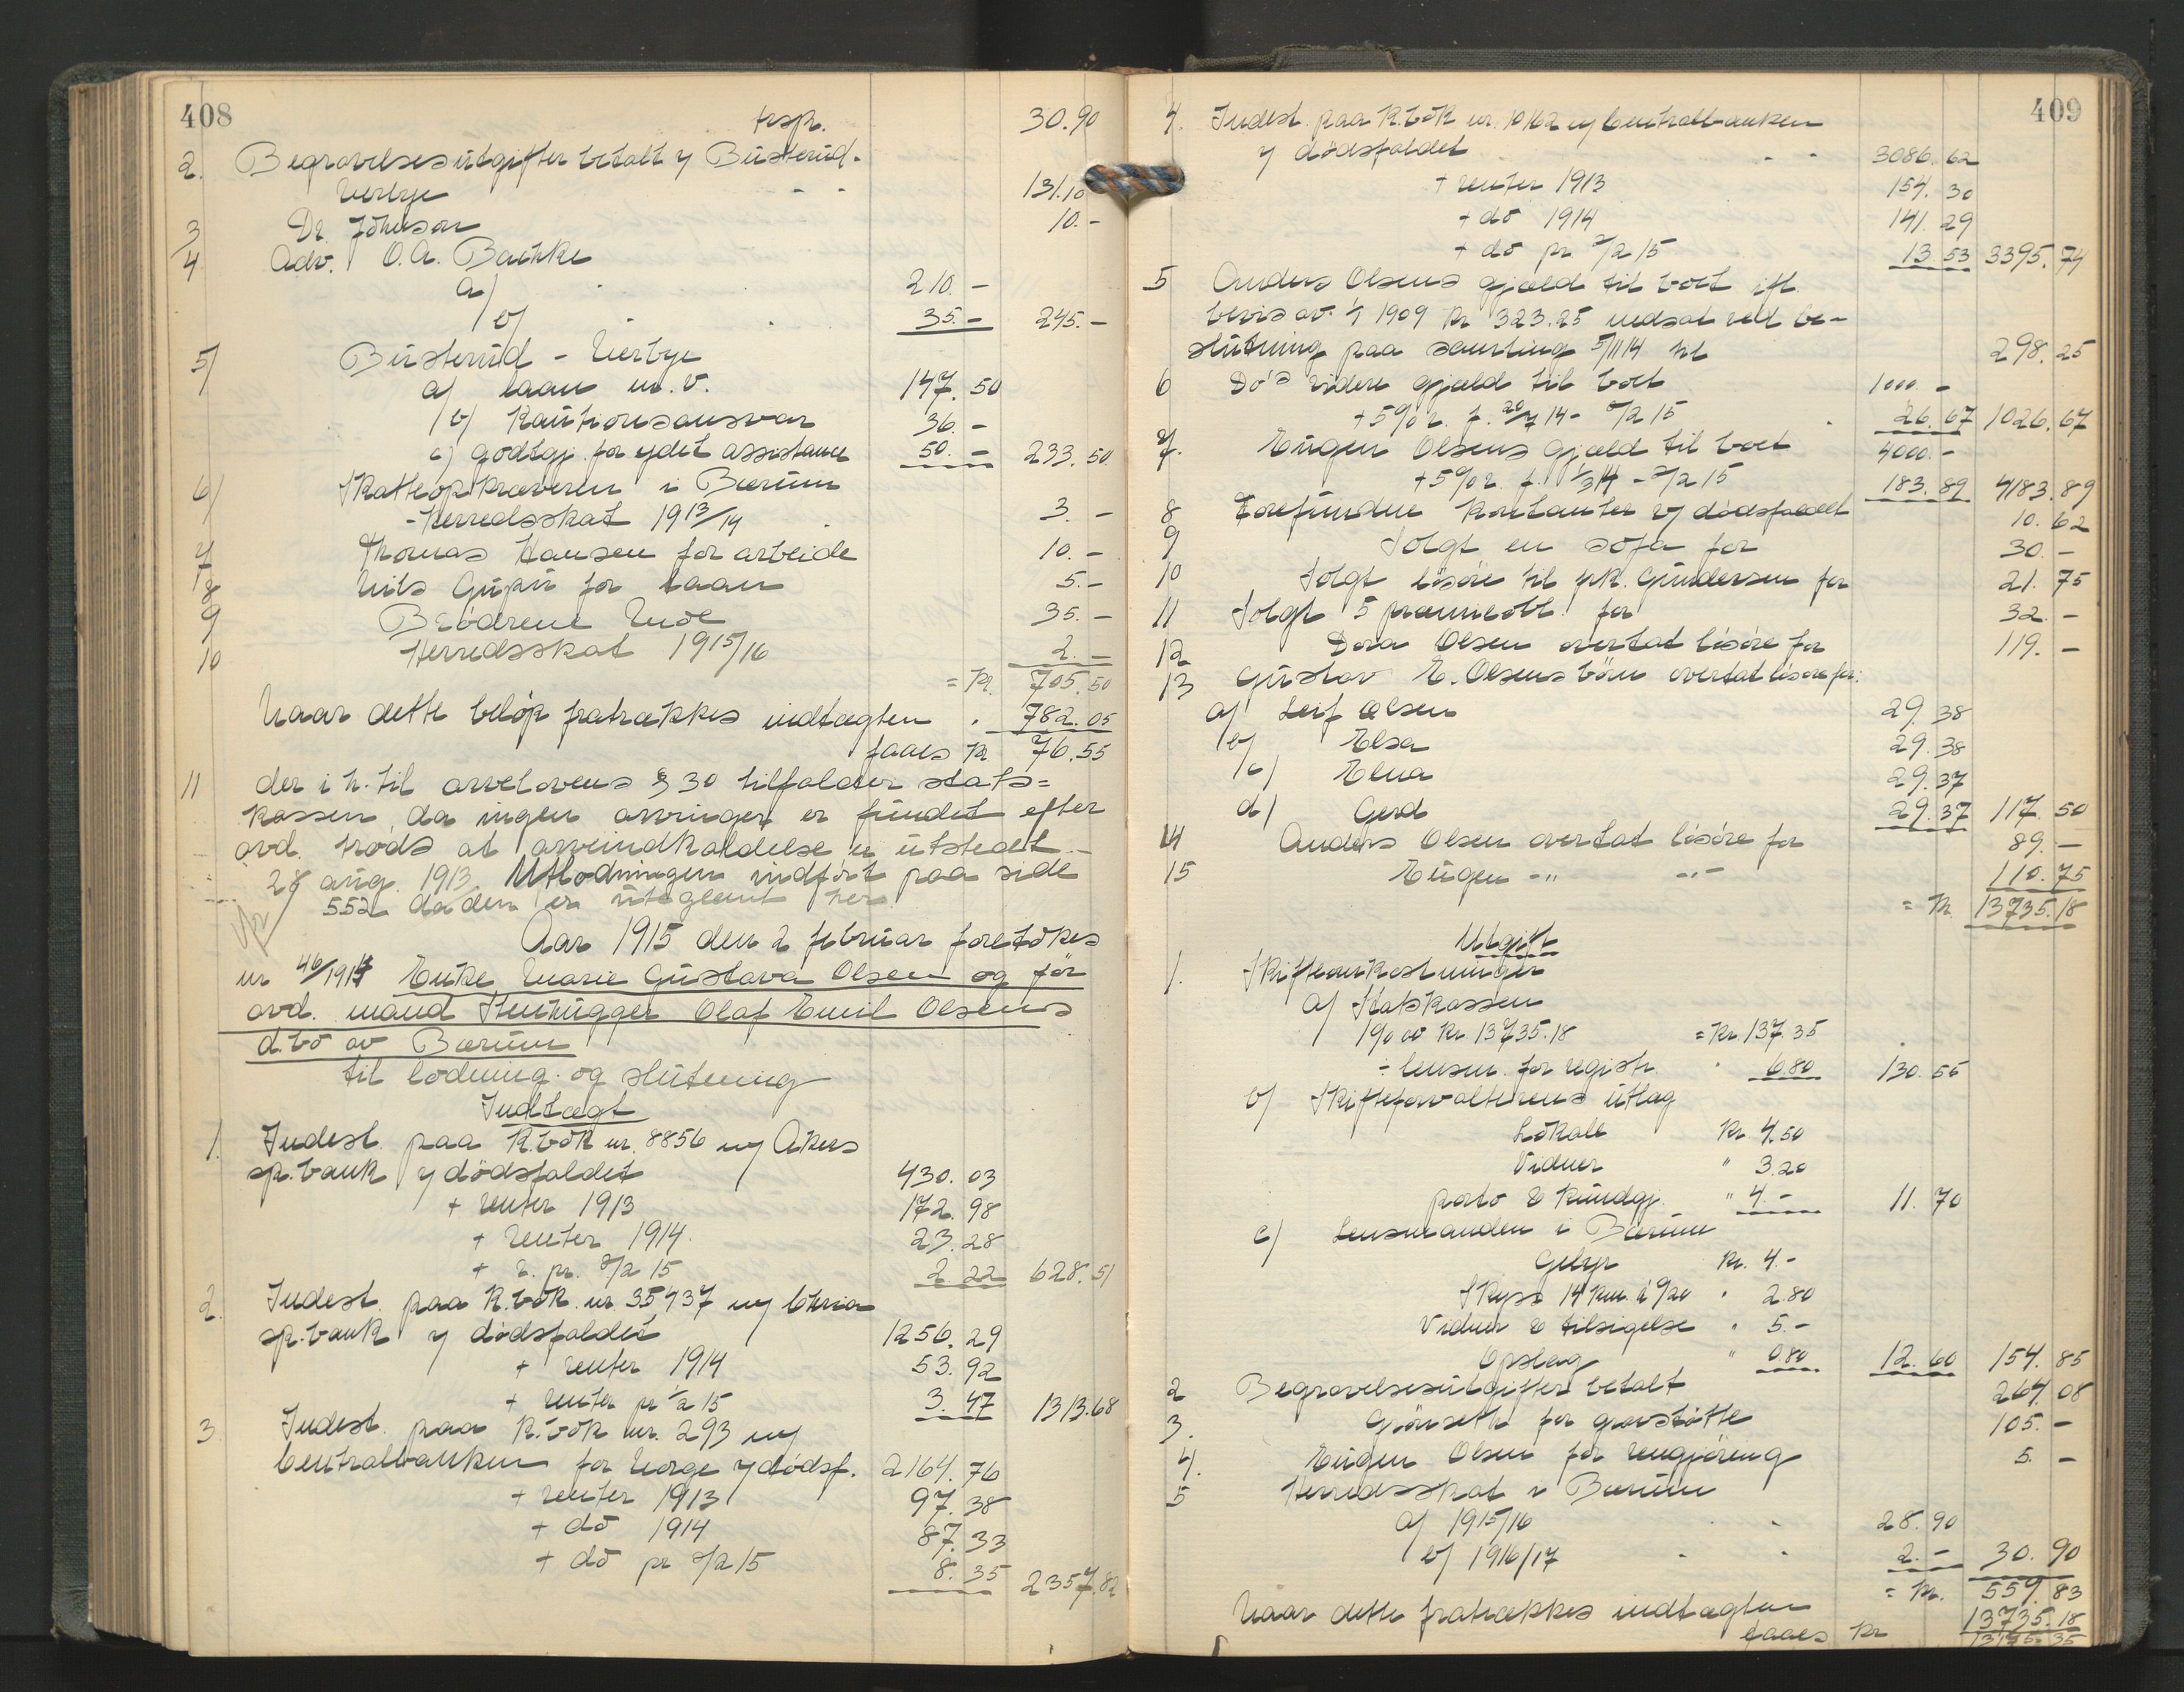 408
trspr. 30.90
2. Begravelsesutgifter betalt v/ Busterud-
Verbye - - 131.10
3 Dr. Johnson 10.-
4 Adv. O.A. Bachke
a/ . 210.-
b/ . . 35.- 245.-
5/ Busterud - Verbye
a/ laan m.v. 147.50
b/ Kautionsansvar 36.-
c/ godtgj. for ydet assistance 50.- 233.50
6/ Skatteopkræveren i Bærum
- Herredsskat 1913/14 . 3.-
7 Thomas Hansen for arbeide 10.-
8 Nils for laan 5.-
9 Brødrene 35.-
10 Herredsskat 1915/16 2.-
= Kr. 705.50
Naar dette beløp fratrækkes indtægten . 782.05
faaes kr 76.55
11 der i h. til arvelovens § 30 tilfalder stats=
kassen, da ingen arvinger er fundet efter
avd. trods at arveindkaldelse er utstedt
28 aug. 1913. Utlodningen indført paa side
552 da den er uteglemt her.
Aar 1915 den 2 februar foretokes
nr 46/1914 Enke Marie Gustava Olsen og før
avd. mand Stenhugger Olaf Emil Olsens
d.bo av Bærum
til lodning og slutning
Indtægt
1. Indest. paa K.bok nr. 8856 m/ Akers
sp.bank v/ dødsfaldet 430.03
+ renter 1913 172.98
+ renter 1914. 23.28
+ r. pr. 2/2 15 2.22 628.51
2. Indest. paa K.bok. nr. 35437 m/ Chria
sp.bank v/ dødsfaldet 1256.29
+ renter 1914 53.92
+ renter pr 2/2 15 3.47 1313.68
3. Indest. paa K.bok nr. 293 m/
Centralbanken for Norge v/dødsf. 2164.76
+ renter 1913 97.38
+ do 1914 87.33
+ do pr 2/2 15 8.35 2357.82
409
4. Indest. paa K.bok nr. 10162 m/ Centralbanken
v/ dødsfaldet - - 3086.62
+ renter 1913 154.30
+ do 1914 141.29
+ do pr 2/2 15 13.53 3395.74
5 Anders Olsens gjæld til boet ifl.
bevis av 1/1 1909 kr 323.25 nedsat ved be-
slutning paa samling 5/11 14 til 298.25
6 Do's videre gjæld til boet 1000.-
+ 5% r. f. 20/7 14 - 2/2 15 . 26.67 1026.67
7. Eugen Olsens gjæld til boet 4000.-
+ 5% r. f. 1/3 14 - 2/2 15 183.89 4183.89
8 Forefundne kontanter v/ dødsfaldet 10.62
9 Solgt en sofa for 30.-
10 Solgt løsøre til frk. Gundersen for 21.75
11 Solgt 5 præmieobl. for 32.-
12 Dora Olsen overtat løsøre for 119.-
13 Gustav E. Olsens børn overtat løsøre for:
a/ Leif Olsen 29.38
b/ Elsa 29.38
c/ Elna 29.37
d/ Gerd 29.37 117.50
14 Anders Olsen overtat løsøre for 89.-
15 Eugen -"- -"- 110.75
= Kr 13735.18
Utgift
1. Skifteomkostninger
a/ Statskassen
1% av kr. 13735.18 = Kr. 137.35
÷ lensm. for registr. " 6.80 130.55
b/ Skifteforvalterens utlag
Lokale Kr. 4.50
Vidner " 3.20
porto & kundgj. " 4.- 11.70
c/ Lensmanden i Bærum
Gebyr Kr. 4.-
Skyss 14 km. à 0/20 " 2.80
Vidner & tilsigelse " 5.-
Opslag " 0.80 12.60 154.85
2 Begravelsesutgifter betalt 264.08
3. Grønseth for gravstøtte 105.-
4. Eugen Olsen for rengjøring 5.-
5 Herredsskat i Bærum
a/ 1915/16 - - 28.90
b/ 1916/17 - - 2.- 30.90
= Kr. 559.83
Naar dette fratrækkes indtægten 13735.18
faaes Kr 13175.35